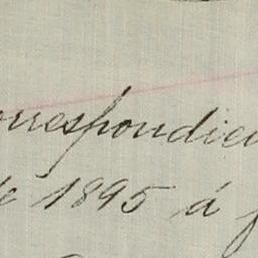 orrespondien
de 1895 á